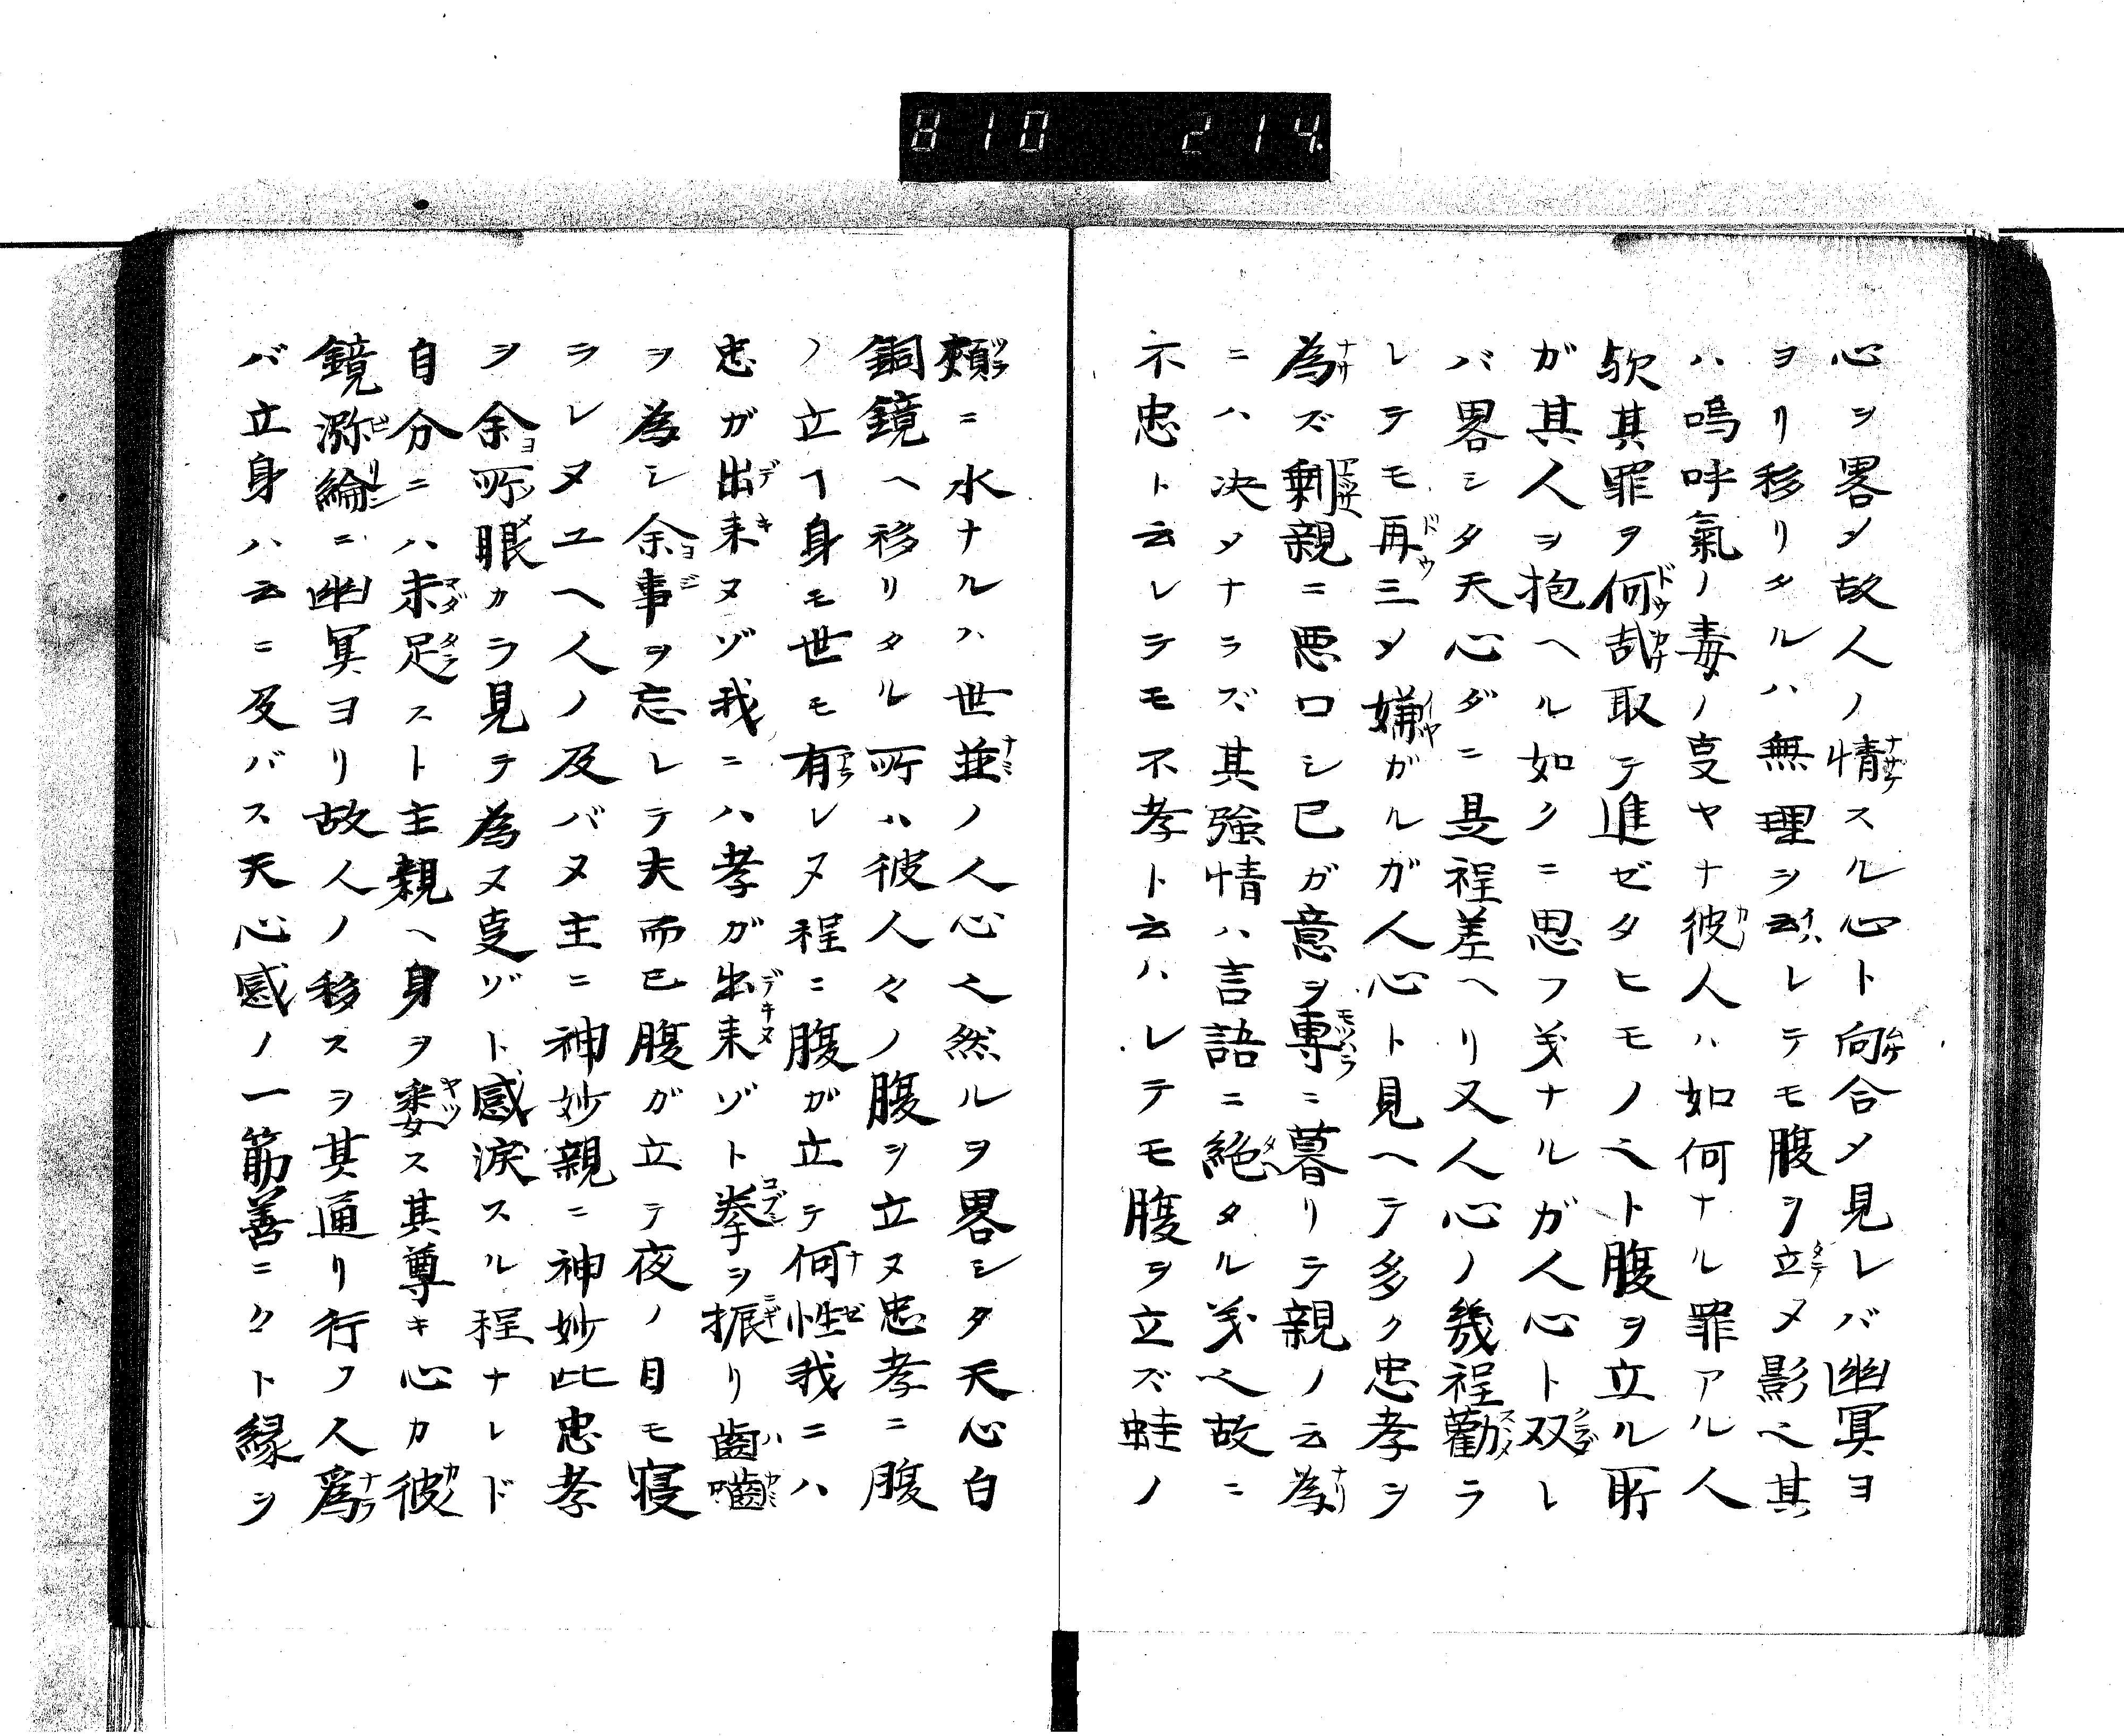 810 214.
心ヲ畧メ故人ノ情スル心ト向合メ見レバ幽冥ヨ
ヲリ移リタルハ無理ヲ云レテモ腹ヲ立ヌ影也其
ハ嗚呼氣ノ毒ノ叓ヤナ彼人ハ如何ナル罪アル人
欤其罪ヲ何哉取テ進ゼタヒモノ也ト腹ヲ立ル所
ガ其人ヲ抱ヘル如クニ思フ美ナルガ人心ト双レ
バ畧シタ天心ダニ是程差ヘリ又人心ノ幾程勸ラ
レテモ再三メ嫌ガルガ人心ト見ヘテ多ク忠孝ヲ
為ズ剰親ニ悪口シ已ガ意ヲ專ニ暮リテ親ノ云為
ニハ决メナラズ其強情ハ言語ニ絶タル美也故ニ
不忠ト云レテモ不孝ト云ハレテモ腹ヲ立ズ蛙ノ
頬ニ水ナルハ世並ノ人心也然ルヲ畧シタ天心白
銅鏡ヘ移リタル所ハ彼人々ノ腹ヲ立ヌ忠孝ニ腹
ノ立テ身モ世モ有レヌ程ニ腹ガ立テ何性我ニハ
忠ガ出来ヌゾ我ニハ孝ガ出来ゾト拳ヲ振リ齒嚙
ヲ為シ余事ヲ忘レテ夫而已腹ガ立テ夜ノ目モ寝
ラレヌユヘ人ノ及バヌ主ニ神妙親ニ神妙此忠孝
ヲ余所眼カラ見テ為ヌ叓ゾト感涙スル程ナレド
自分ニハ未足スト主親ヘ身ヲ委ス其尊キ心カ彼
鏡瀰綸ニ幽冥ヨリ故人ノ移スヲ其通リ行フ人爲
バ立身ハ云ニ及バス天心感ノ一筋善ニクト縁ヲ